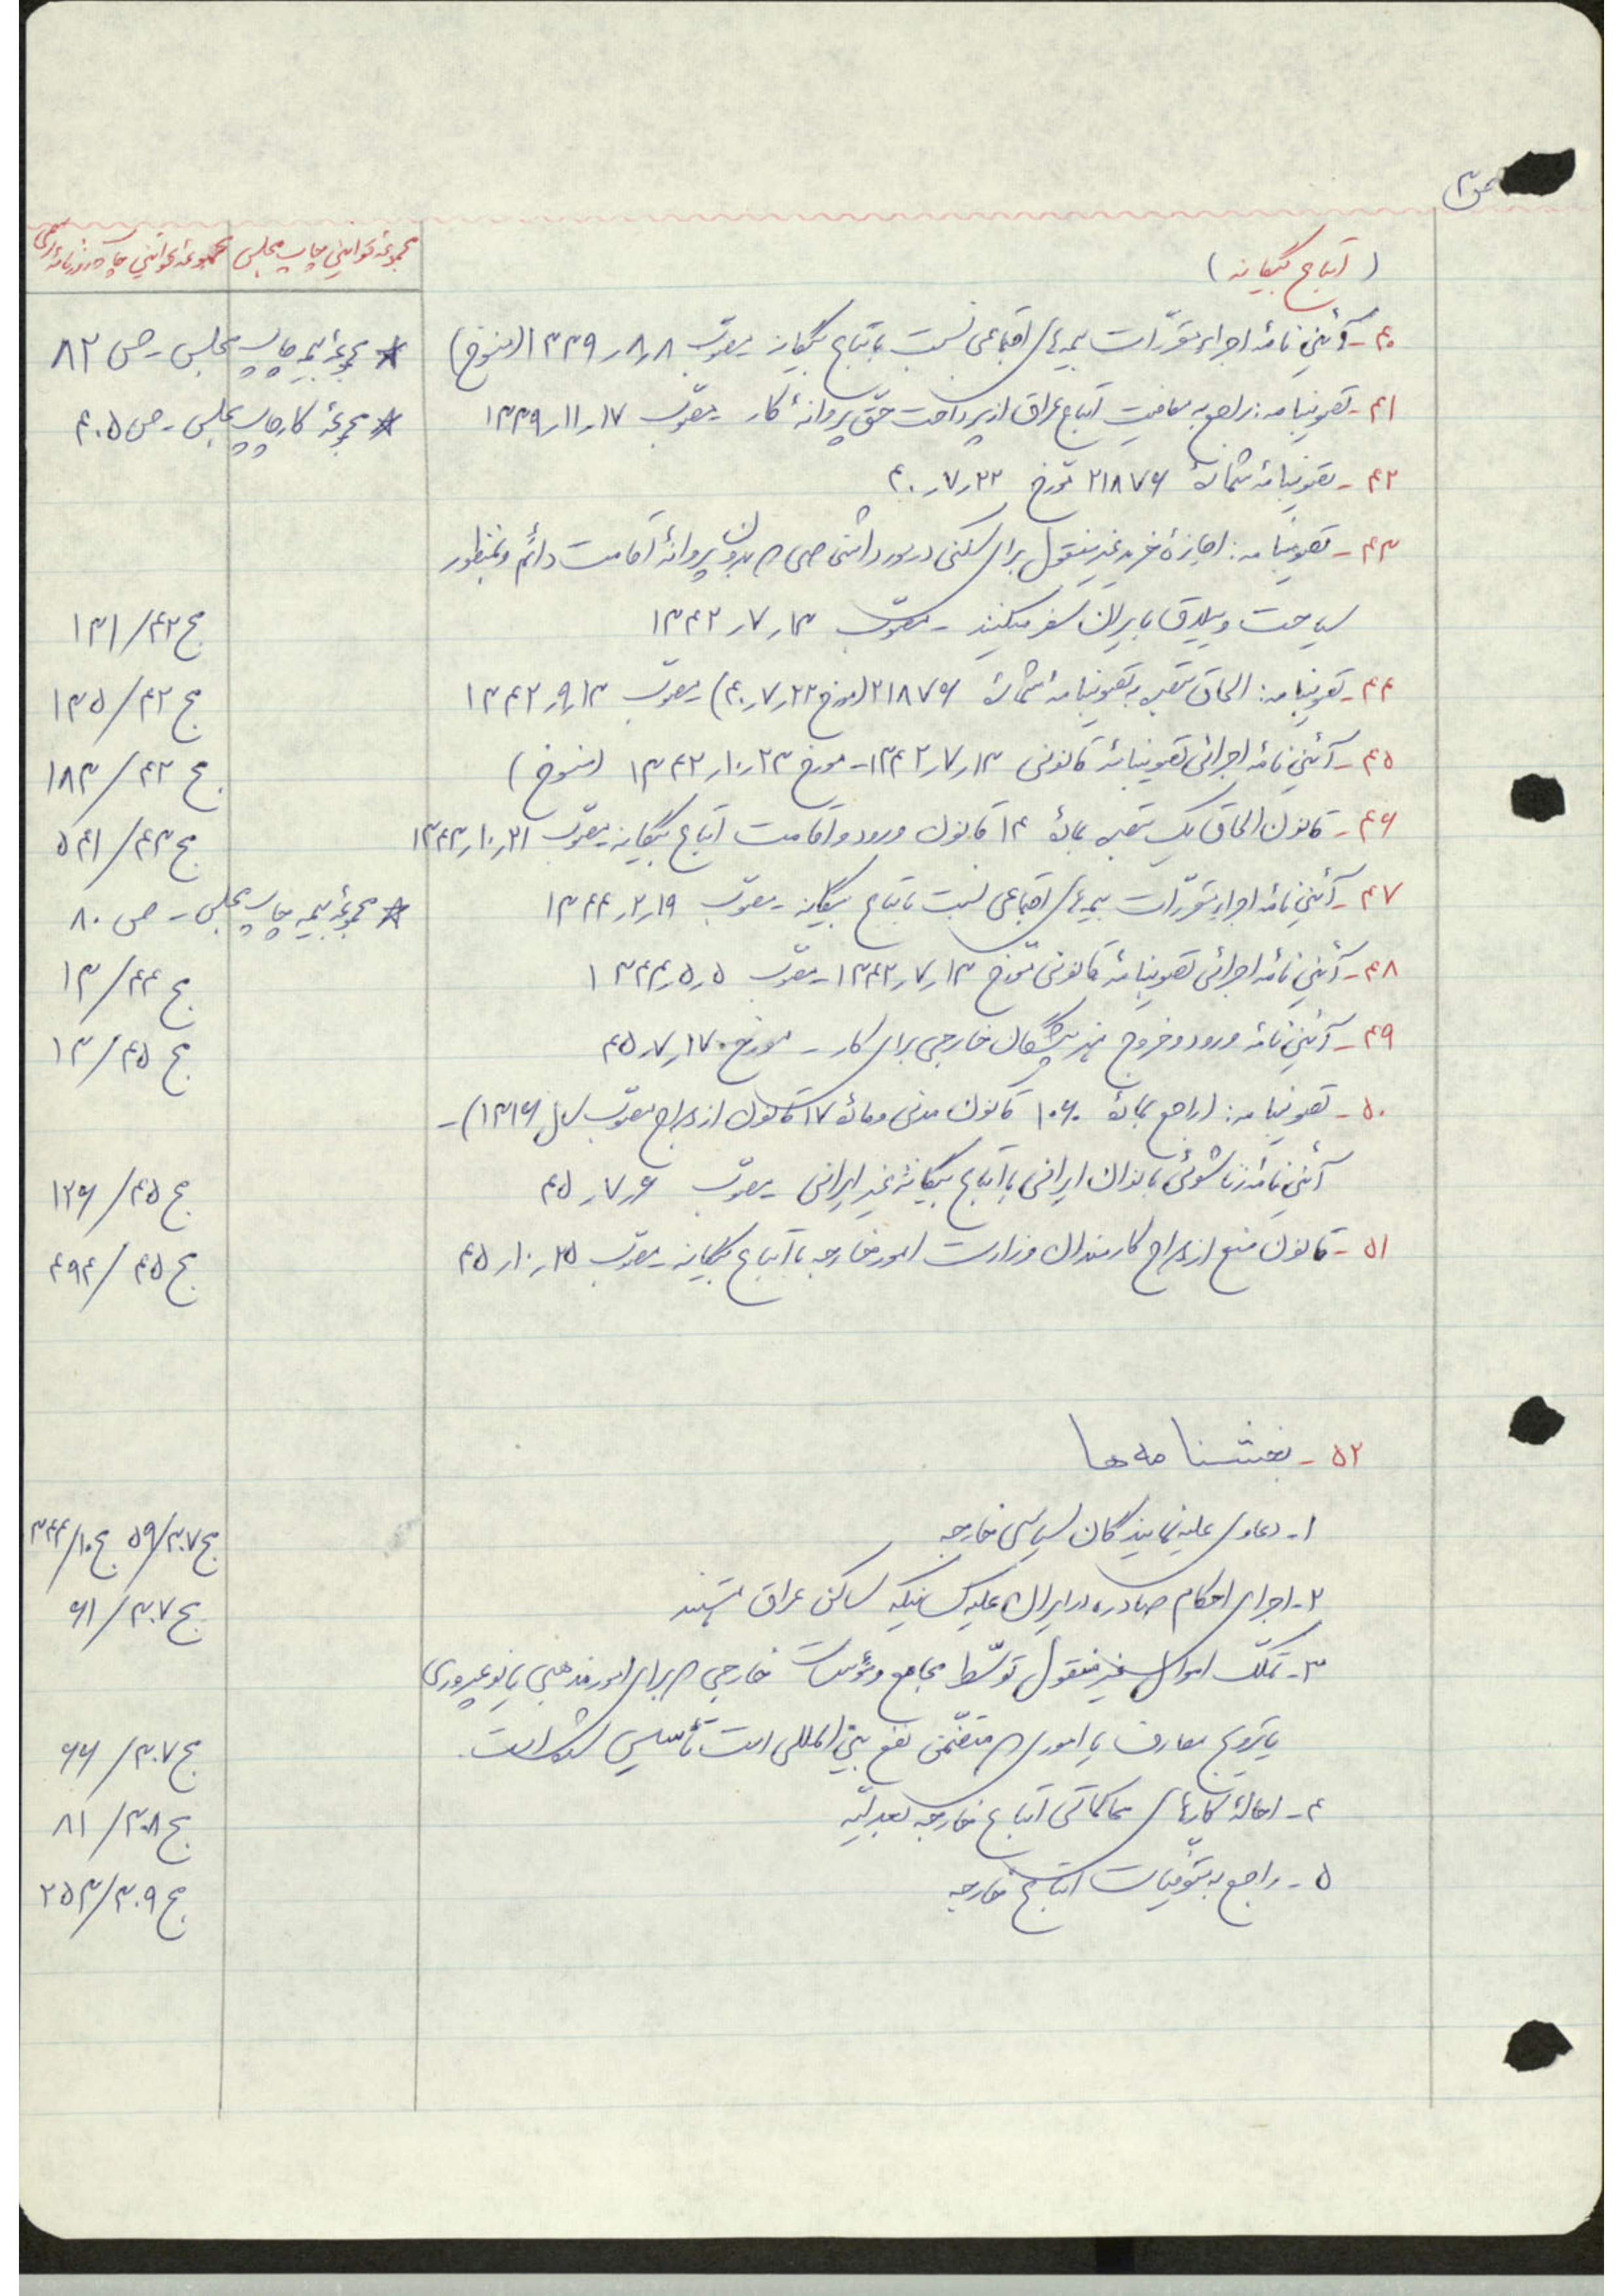 ص ۳
(اتباع بیگانه)
مجموعه قوانین چاپ مجلس
مجموعه قوانین چاپ روزنامه رسمی
۴۰- آئین نامهٔ اجراء مقرّرات بیمه‌های اجتماعی نسبت باتباع بیگانه مصوّب ۸ر۸ر۱۳۳۹ (منسوخ)
* مجموعهٔ بیمه چاپ مجلس - ص ۸۲
۴۱- تصویبنامه: راجع به معافیت اتباع عراق از پرداخت حقّ پروانهٔ کار - مصوّب ۱۷ر۱۱ر۱۳۳۹
* مجموعهٔ کار چاپ مجلس - ص ۴۰۵
۴۲- تصویبنامهٔ شمارهٔ ۲۱۸۷۶ مورّخ ۲۲ر۷ر۴۰
۴۳- تصویبنامه: اجازهٔ خرید غیرمنقول برای سکنی در مورد اشخاصی که بدون پروانهٔ اقامت دائم و بمنظور
سیاحت و ییلاق بایران سفر میکنند - مصوّب ۱۳ر۷ر۱۳۴۲
ج ۴۲/۱۳۱
۴۴- تصویبنامه: الحاق تبصره به تصویبنامهٔ شمارهٔ ۲۱۸۷۶ (مورخ ۲۲ر۷ر۴۰) مصوّب ۱۳ر۹ر۱۳۴۲
ج ۴۲/۱۳۵
۴۵- آئین نامهٔ اجرائی تصویبنامهٔ قانونی ۱۳ر۷ر۱۳۴۲ - مورخ ۲۳ر۱۰ر۱۳۴۲ (منسوخ)
ج ۴۲/۱۸۳
۴۶- قانون الحاق یک تبصره بمادهٔ ۱۴ قانون ورود و اقامت اتباع بیگانه مصوّب ۲۱ر۱۰ر۱۳۴۳
ج ۴۳/۵۴۱
۴۷- آئین نامهٔ اجراء مقرّرات بیمه‌های اجتماعی نسبت باتباع بیگانه - مصوّب ۱۹ر۲ر۱۳۴۴
* مجموعهٔ بیمه چاپ مجلس - ص ۸۰
۴۸- آئین نامهٔ اجرائی تصویبنامهٔ قانونی مورّخ ۱۳ر۷ر۱۳۴۲ - مصوّب ۵ر۵ر۱۳۴۴
ج ۴۴/۱۳
۴۹- آئین نامهٔ ورود و خروج هنرپیشگان خارجی برای کار - مورخ ۱۷ر۷ر۴۵
ج ۴۵/۱۳
۵۰- تصویبنامه: (راجع بمادهٔ ۱۰۶۰ قانون مدنی و مادهٔ ۱۷ قانون ازدواج مصوّب سال ۱۳۱۶) -
آئین نامهٔ زناشوئی بانوان ایرانی با اتباع بیگانهٔ غیر ایرانی مصوّب ۶ر۷ر۴۵
ج ۴۵/۱۲۶
۵۱- قانون منع ازدواج کارمندان وزارت امور خارجه با اتباع بیگانه - مصوّب ۲۵ر۱۰ر۴۵
ج ۴۵/۴۹۴
۵۲- بخشنامه‌ها
۱- دعاوی علیه نمایندگان سیاسی خارجه
ج ۳۰۷/۵۹ ج ۱۰/۳۴۴
۲- اجرای احکام صادره در ایران علیه کسانیکه ساکن عراق هستند
ج ۳۰۷/۶۱
۳- تملّک اموال غیرمنقول توسّط مجامع و مؤسسات خارجی که برای امور مذهبی یا نوعپروری
یا ترویج معارف یا اموری که متضمّن نفع بین‌المللی است تأسیس شده است.
ج ۳۰۷/۶۶
۴- احالهٔ کارهای محاکماتی اتباع خارجه بعدلیّه
ج ۳۰۸/۸۱
۵- راجع به متوفّیات اتباع خارجه
ج ۳۰۹/۲۵۳